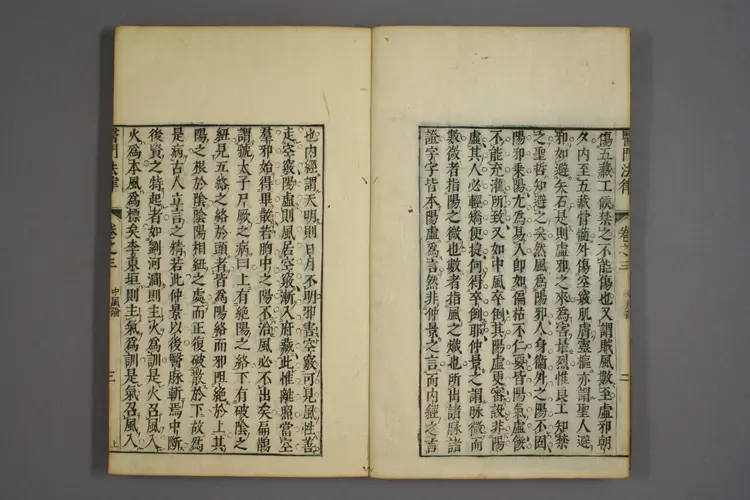 醫門法律 卷之三
傷五藏工候禁之不能傷也又謂賊風數至虛邪朝
夕內至五藏骨髓外傷空竅肌膚靈樞亦謂聖人避
邪如避矢石是則虛邪之來為害最烈惟良工知禁
之聖哲知避之矣然風為陽邪人身衛外之陽不固
陽邪乘陽尤為易入即如偏枯不仁要皆陽氣虛餒
不能充灌所致又如中風卒倒其陽虛更審設非陽
虛其人必輕矯便捷何得卒倒耶仲景之謂脉微而
數微者指陽之微也數者指風之熾也所出諸脉諸
證字字皆本陽虛為言然非仲景之言而內經之言
二
也內經謂天明則日月不明邪害空竅可見風性善
走空竅陽虛則風居空竅漸入府藏此惟離照當空
羣邪始得畢散若胸中之陽不治風必不出矣扁鵲
謂虢太子尸厥之病曰上有絕陽之絡下有破陰之
紐見五絡之絡於頭者皆為陽絡而邪阻絕於上其
陽之根於陰陰陽相紐之處而正復破散於下故為
是病古人立言之精若此仲景以後醫脉斬焉中斷
後賢之特起者如劉河澗則主火為訓是火召風入
火為本風為標矣李東垣則主氣為訓是氣召風入
醫門法律 卷之三 中風論 三 上